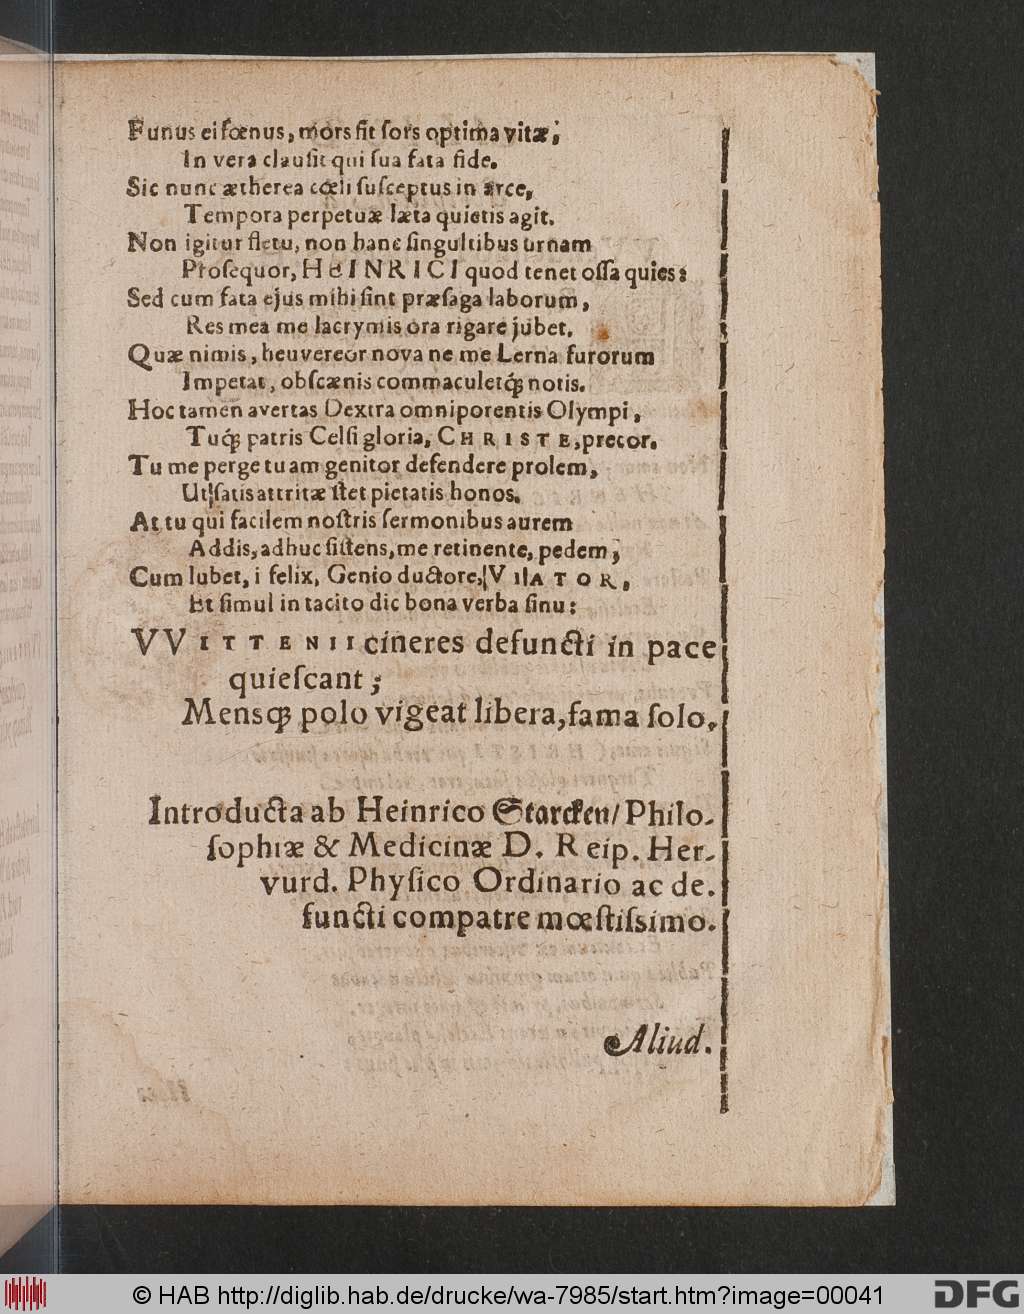 Funus ei fœnus, mors fit ſors optima vitæ,
In vera clauſit qui ſua fata fide.
Sic nunc ætherea cœli ſuſceptus in arce,
Tempora perpetuæ læta quietis agit.
Non igitur fletu, non hanc ſingultibus urnam
Proſequor, HEINRICI quod tenet oſſa quies:
Sed cum fata ejus mihi ſint præſaga laborum,
Res mea me lacrymis ora rigare jubet.
Quæ nimis, heu vereor nova ne me Lerna furorum
Impetat, obſcænis commaculetq́; notis.
Hoc tamen avertas Dextra omnipotentis Olympi,
Tuq́; patris Celſi gloria, CHRISTE, precor.
Tu me perge tuam genitor defendere prolem,
Ut ſatis attritæ ſtet pietatis honos.
At tu qui facilem noſtris ſermonibus aurem
Addis, adhuc ſiſtens, me retinente, pedem;
Cum lubet, i felix, Genio ductore, VIATOR,
Et ſimul in tacito dic bona verba ſinu:
VVITTENII cineres defuncti in pace
quieſcant;
Mensq; polo vigeat libera, fama ſolo.
Introducta ab Heinrico Starcken/ Philo-
ſophiæ & Medicinæ D. Reip. Her-
vurd. Phyſico Ordinario ac de-
functi compatre mœſtiſsimo.
Aliud.
© HAB http://diglib.hab.de/drucke/wa-7985/start.htm?image=00041
DFG